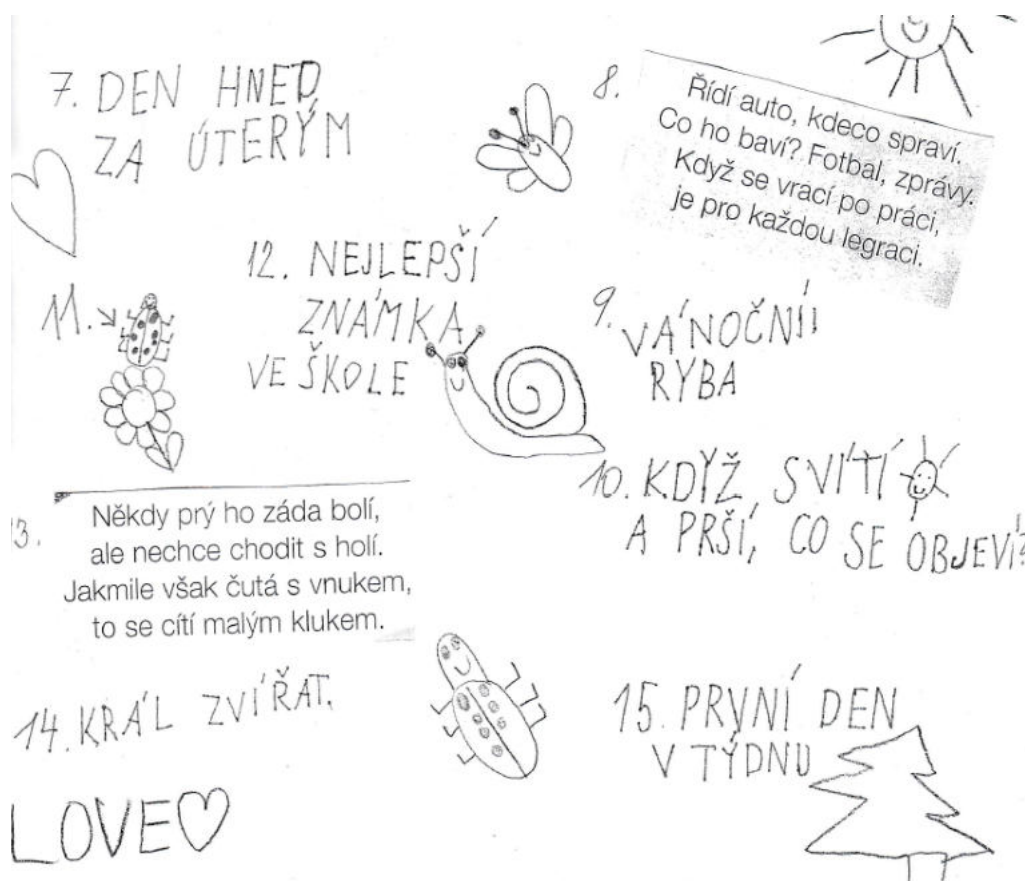 7. DEN HNED
ZA ÚTERÝM
8.
Řídí auto, kdeco spraví.
Co ho baví? Fotbal, zprávy.
Když se vrací po práci,
je pro každou legraci.
12. NEJLEPŠÍ
ZNÁMKA
VE ŠKOLE
11.
9.
VÁNOČNÍ
RYBA
10. KDYŽ SVÍTÍ
A PRŠÍ, CO SE OBJEVÍ?
13.
Někdy prý ho záda bolí,
ale nechce chodit s holí.
Jakmile však čutá s vnukem,
to se cítí malým klukem.
14. KRÁL ZVÍŘAT.
15. PRVNÍ DEN
V TÝDNU
LOVE